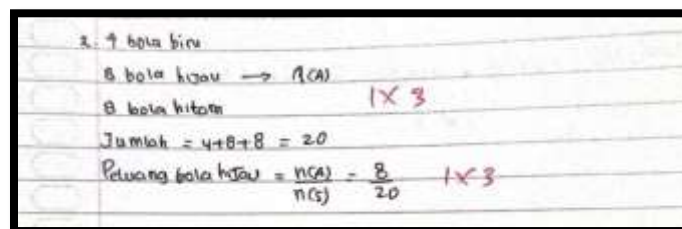 2. 4 bola biru
8 bola hijau → n(A)
8 bola hitam
1 x 3
Jumlah = 4+8+8 = 20
Peluang bola hijau = n(A)/n(S) = 8/20 1 x 3